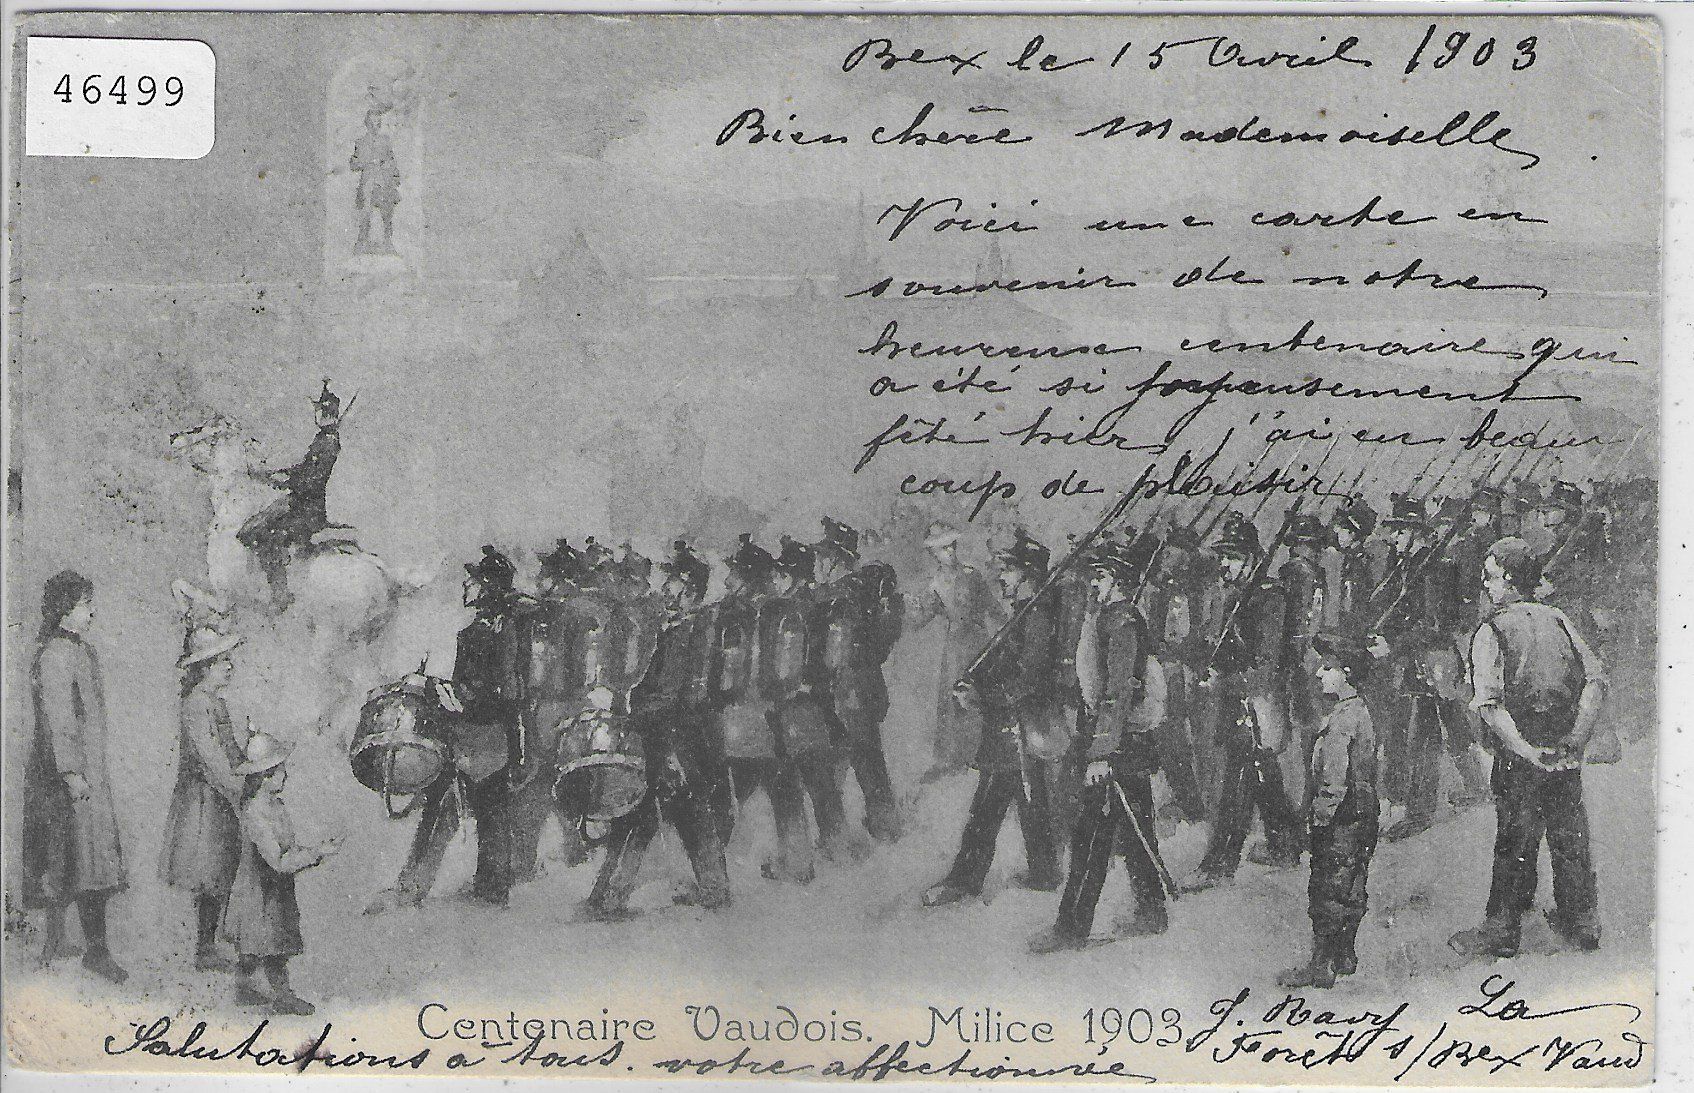 46499
Bex le 15 Avril 1903
Bien chère Mademoiselle
Voici une carte en
souvenir de notre
heureuse centenaire qui
a été si joyeusement
fêté hier, j'ai eu beau
coup de plaisir
Centenaire Vaudois. Milice 1903.
Salutations à tous. votre affectionnée
J. Ravy La
Forêt s/Bex Vaud